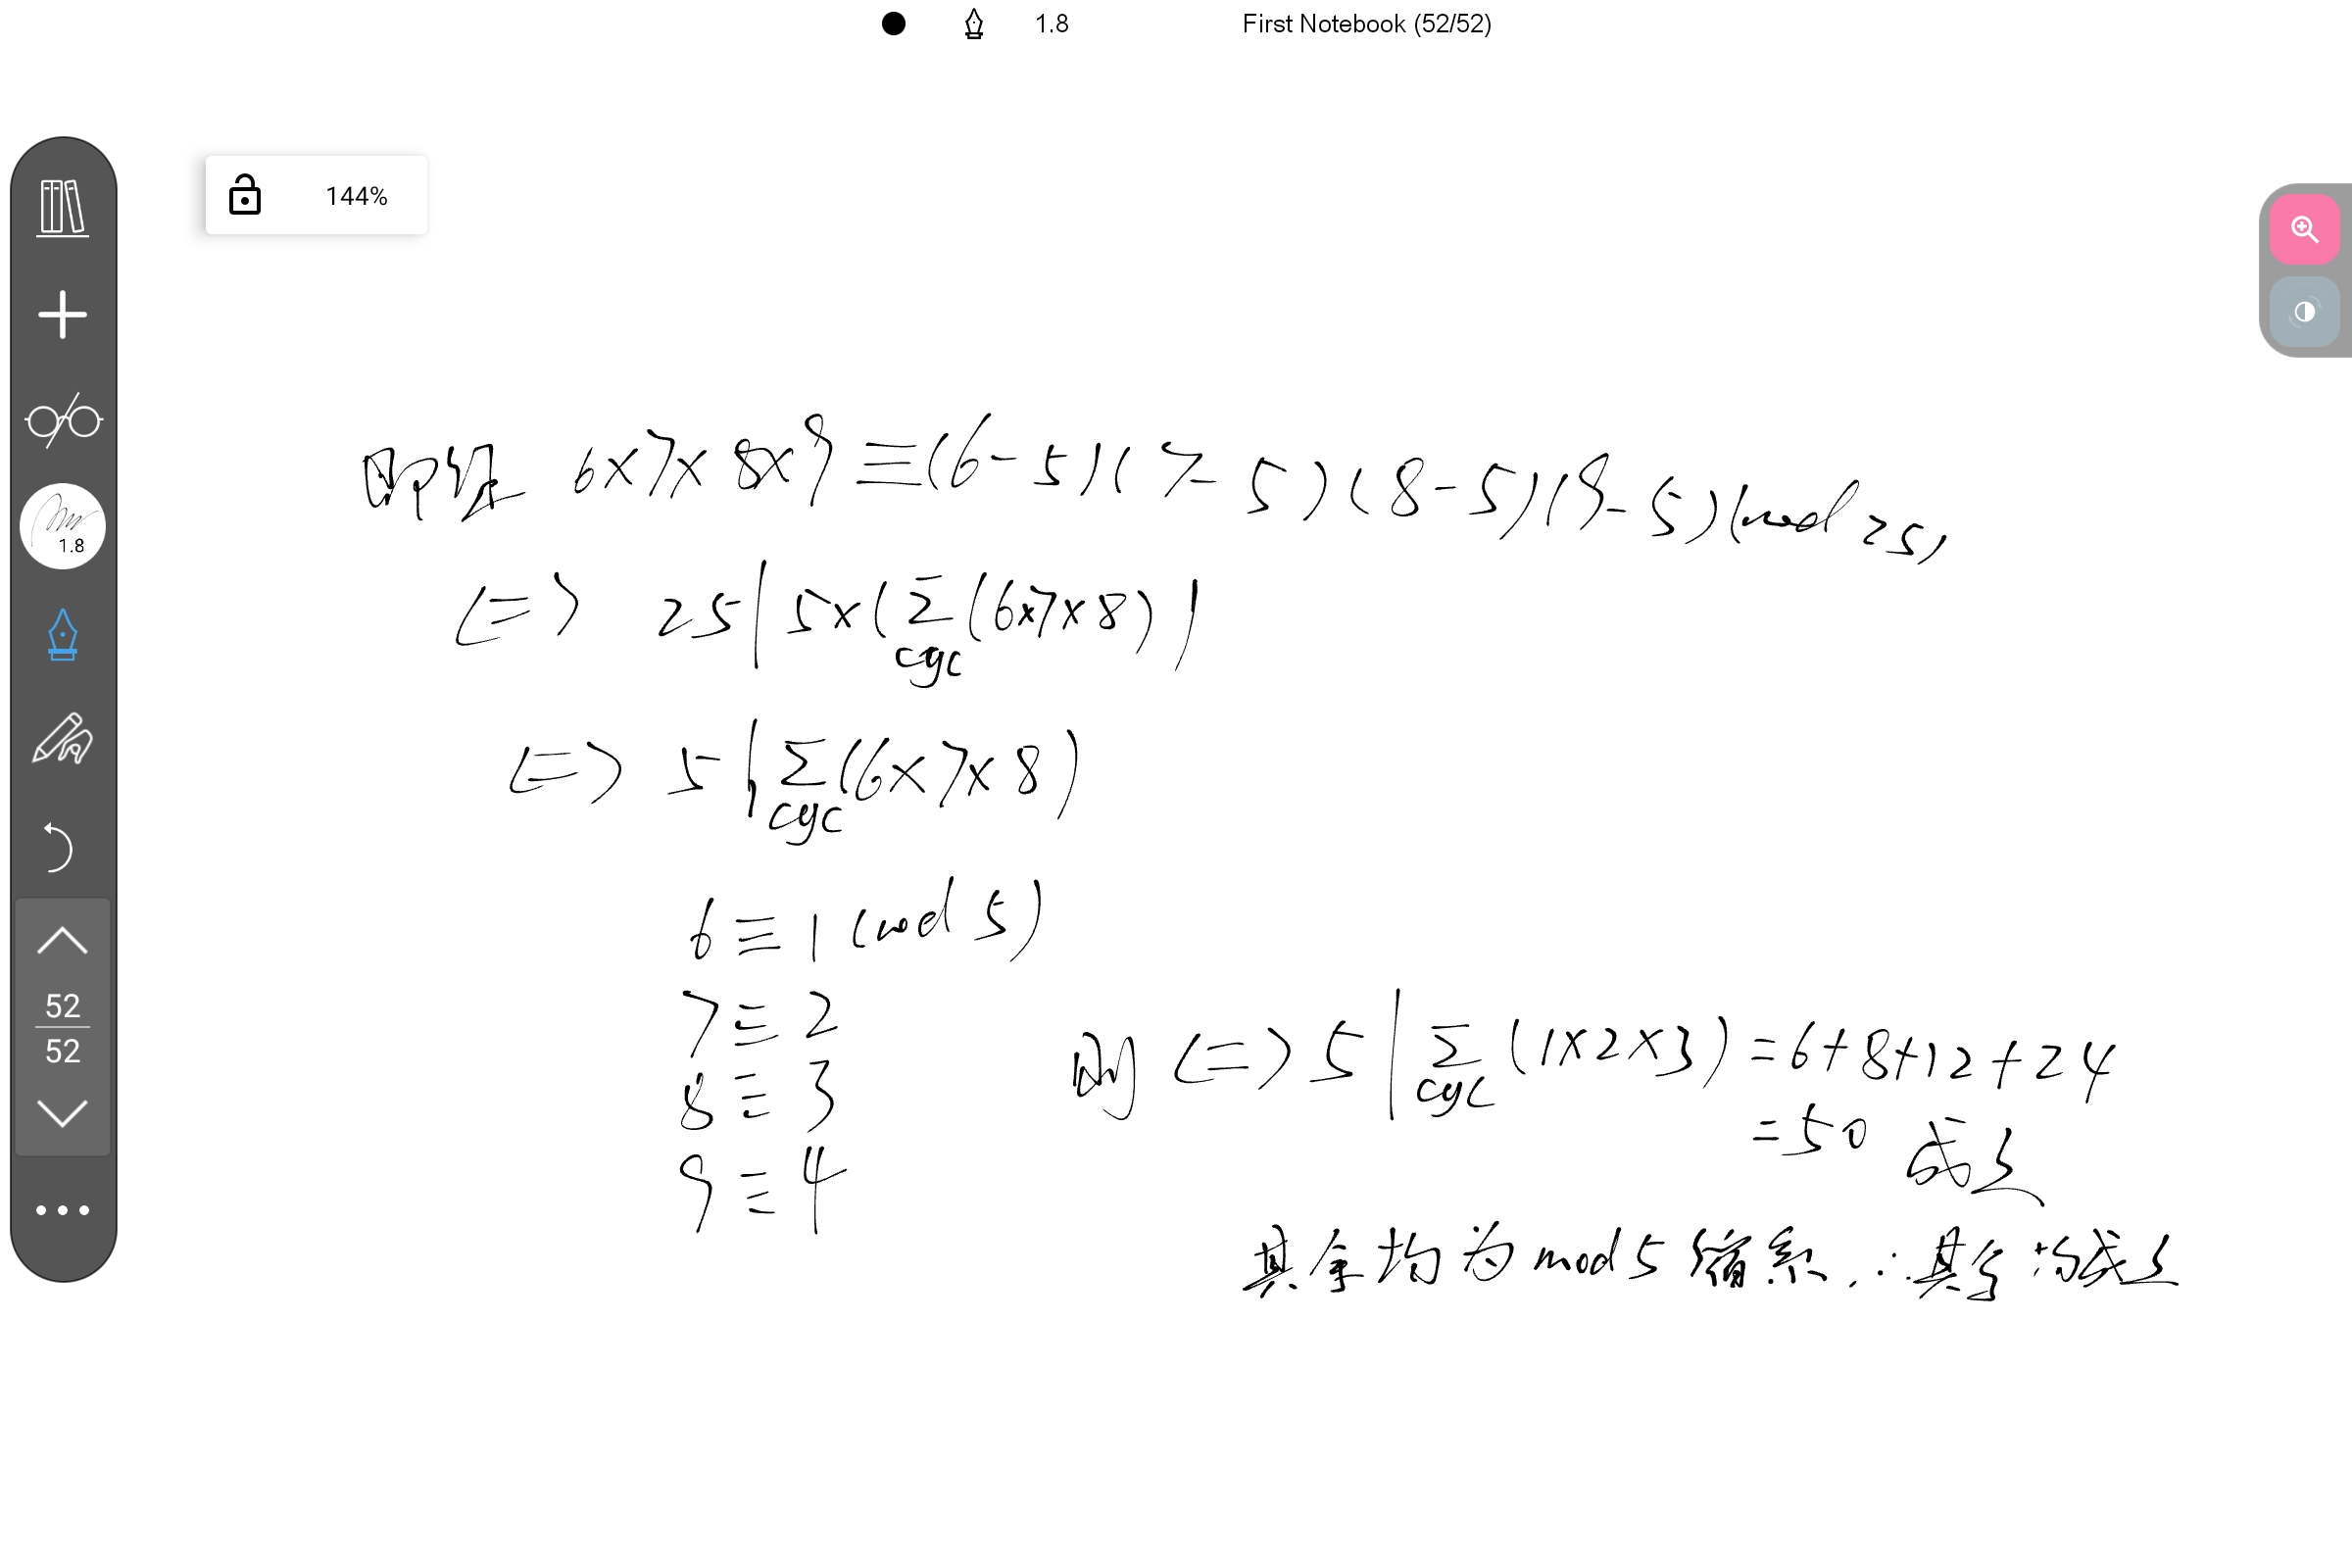 1.8
First Notebook (52/52)
144%
1.8
即证 6×7×8×9≡(6-5)(7-5)(8-5)(9-5)(mod 25)
<=> 25|5×(Σ(6×7×8))
cyc
<=> 5|Σ(6×7×8)
cyc
6≡1 (mod 5)
7≡2
8≡3
9≡4
则 <=> 5|Σ(1×2×3)=6+8+12+24
cyc
=50 成立
其余均为mod 5 缩系,∴其余均成立
52
52